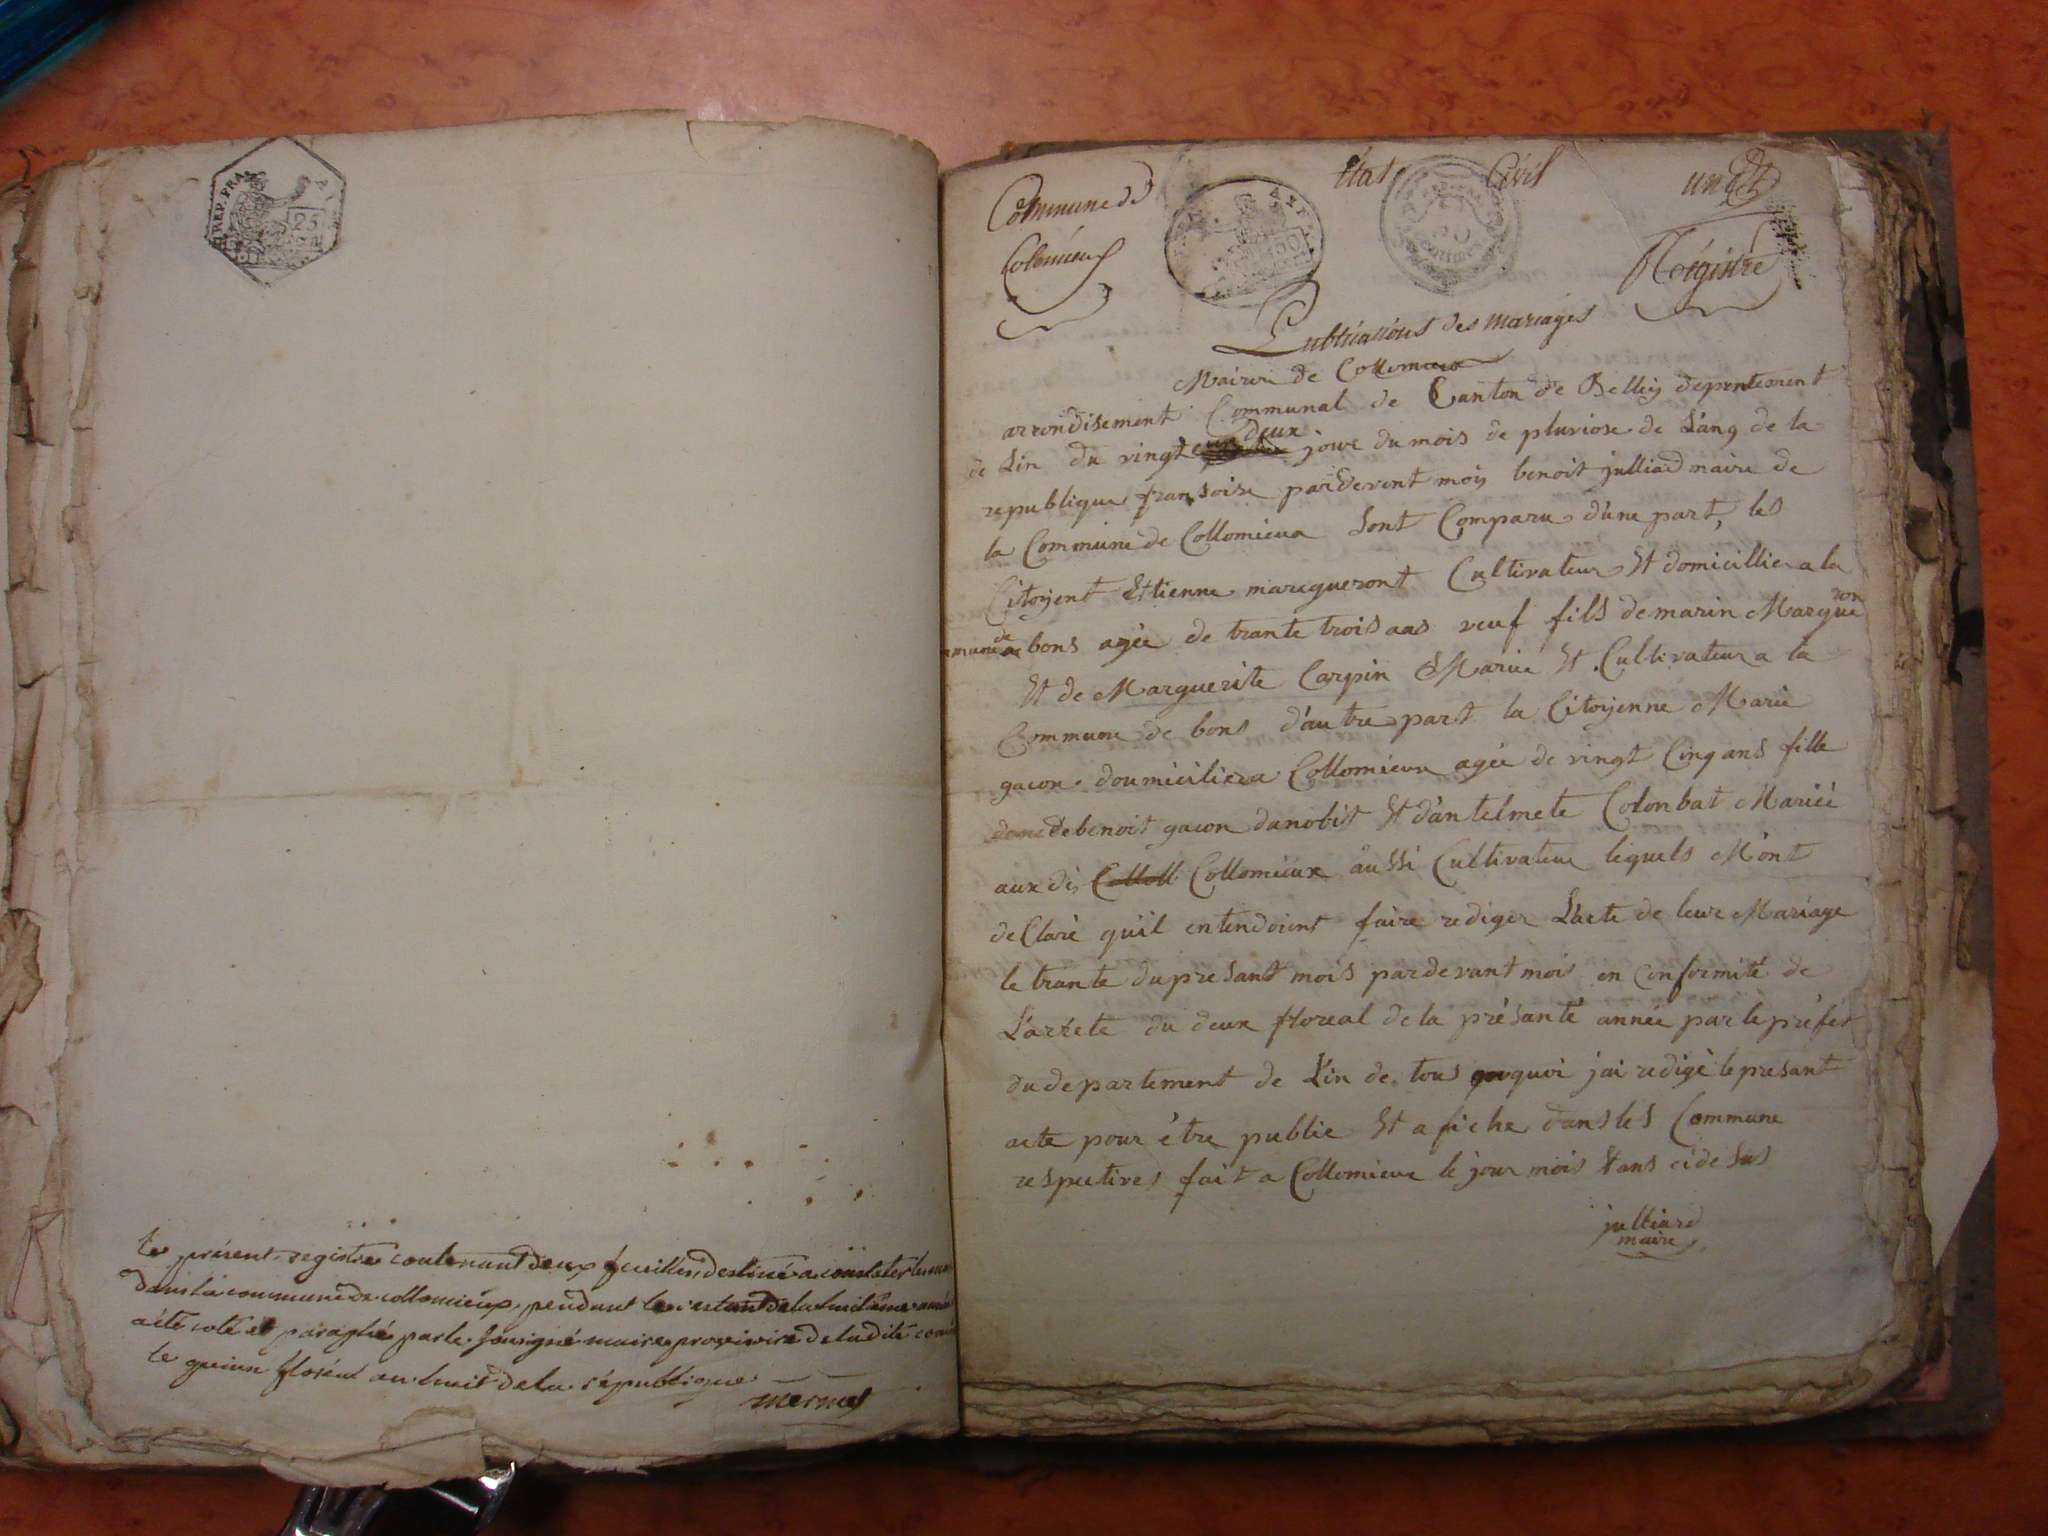 REP. FRA.
25
le présent registre contenant deux feuilles, destiné a constater les
dans la commune de collomieux, pendant le restant de la huitième année
a été coté et paraphé par le sousigné maire provisoire de la dite
le quinze floréal an huit de la république
mermet
Commune de
Colomieux
Etat Civil
50
Régistre
Publications des mariages
Mairie de Collomieux
arrondisement Communal de Canton de Belley departement
de Lin du vingt deux jour du mois de pluviose de L'an 9 de la
republique fransoise pardevent moy benoit julliard maire de
la Commune de Collomieux Sont Comparu d'une part, les
Citoyent Ettienne margueront Cultivateur Et domicillier a la
de bons agée de trante trois ans veuf fils de marin Margueron
Et de Marguerite Carpin Mariée Et Cultivateur a la
Commune de bons d'autre part la Citoyenne Marie
gacon doumiciliera Collomieux agée de vingt Cinq ans fille
de benoit gacon danobit Et d'antelmete Colonbat Mariéé
aux di Colloll Collomieux aussi Cultivateur lequels M'ont
de Claré qu'il entendoient faire rediger L'acte de leur Mariage
le trante du presant mois par devant mois en Conformité de
L'arrete du deux floreal de la présante année par le préfet
du departement de L'in de tous quoi j'ai redigé le presant
acte pour être publie Et afiche dans les Commune
respectives fait a Collomieux le jour mois Et ans ci de sus
julliard
maire